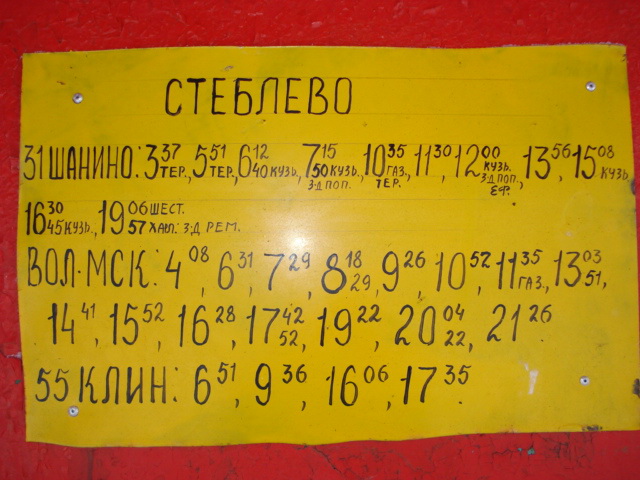 СТЕБЛЕВО
31 ШАНИНО: 3 37 ТЕР., 5 51 ТЕР., 6 12 40 КУЗЬ, 7 15 50 КУЗЬ. З-Д ПОП., 10 35 ГАЗ. ТЕР., 11 30, 12 00 КУЗЬ. З-Д ПОП., ЕФ. 13 56, 15 08 КУЗЬ,
16 30 45 КУЗЬ., 19 06 ШЕСТ. 57 З-Д РЕМ.
ВОЛ-МСК: 4 08, 6 31, 7 29, 8 18 29, 9 26, 10 52, 11 35 ГАЗ., 13 03 51,
14 41, 15 52, 16 28, 17 42 52, 19 22, 20 04 22, 21 26.
55 КЛИН: 6 51, 9 36, 16 06, 17 35.